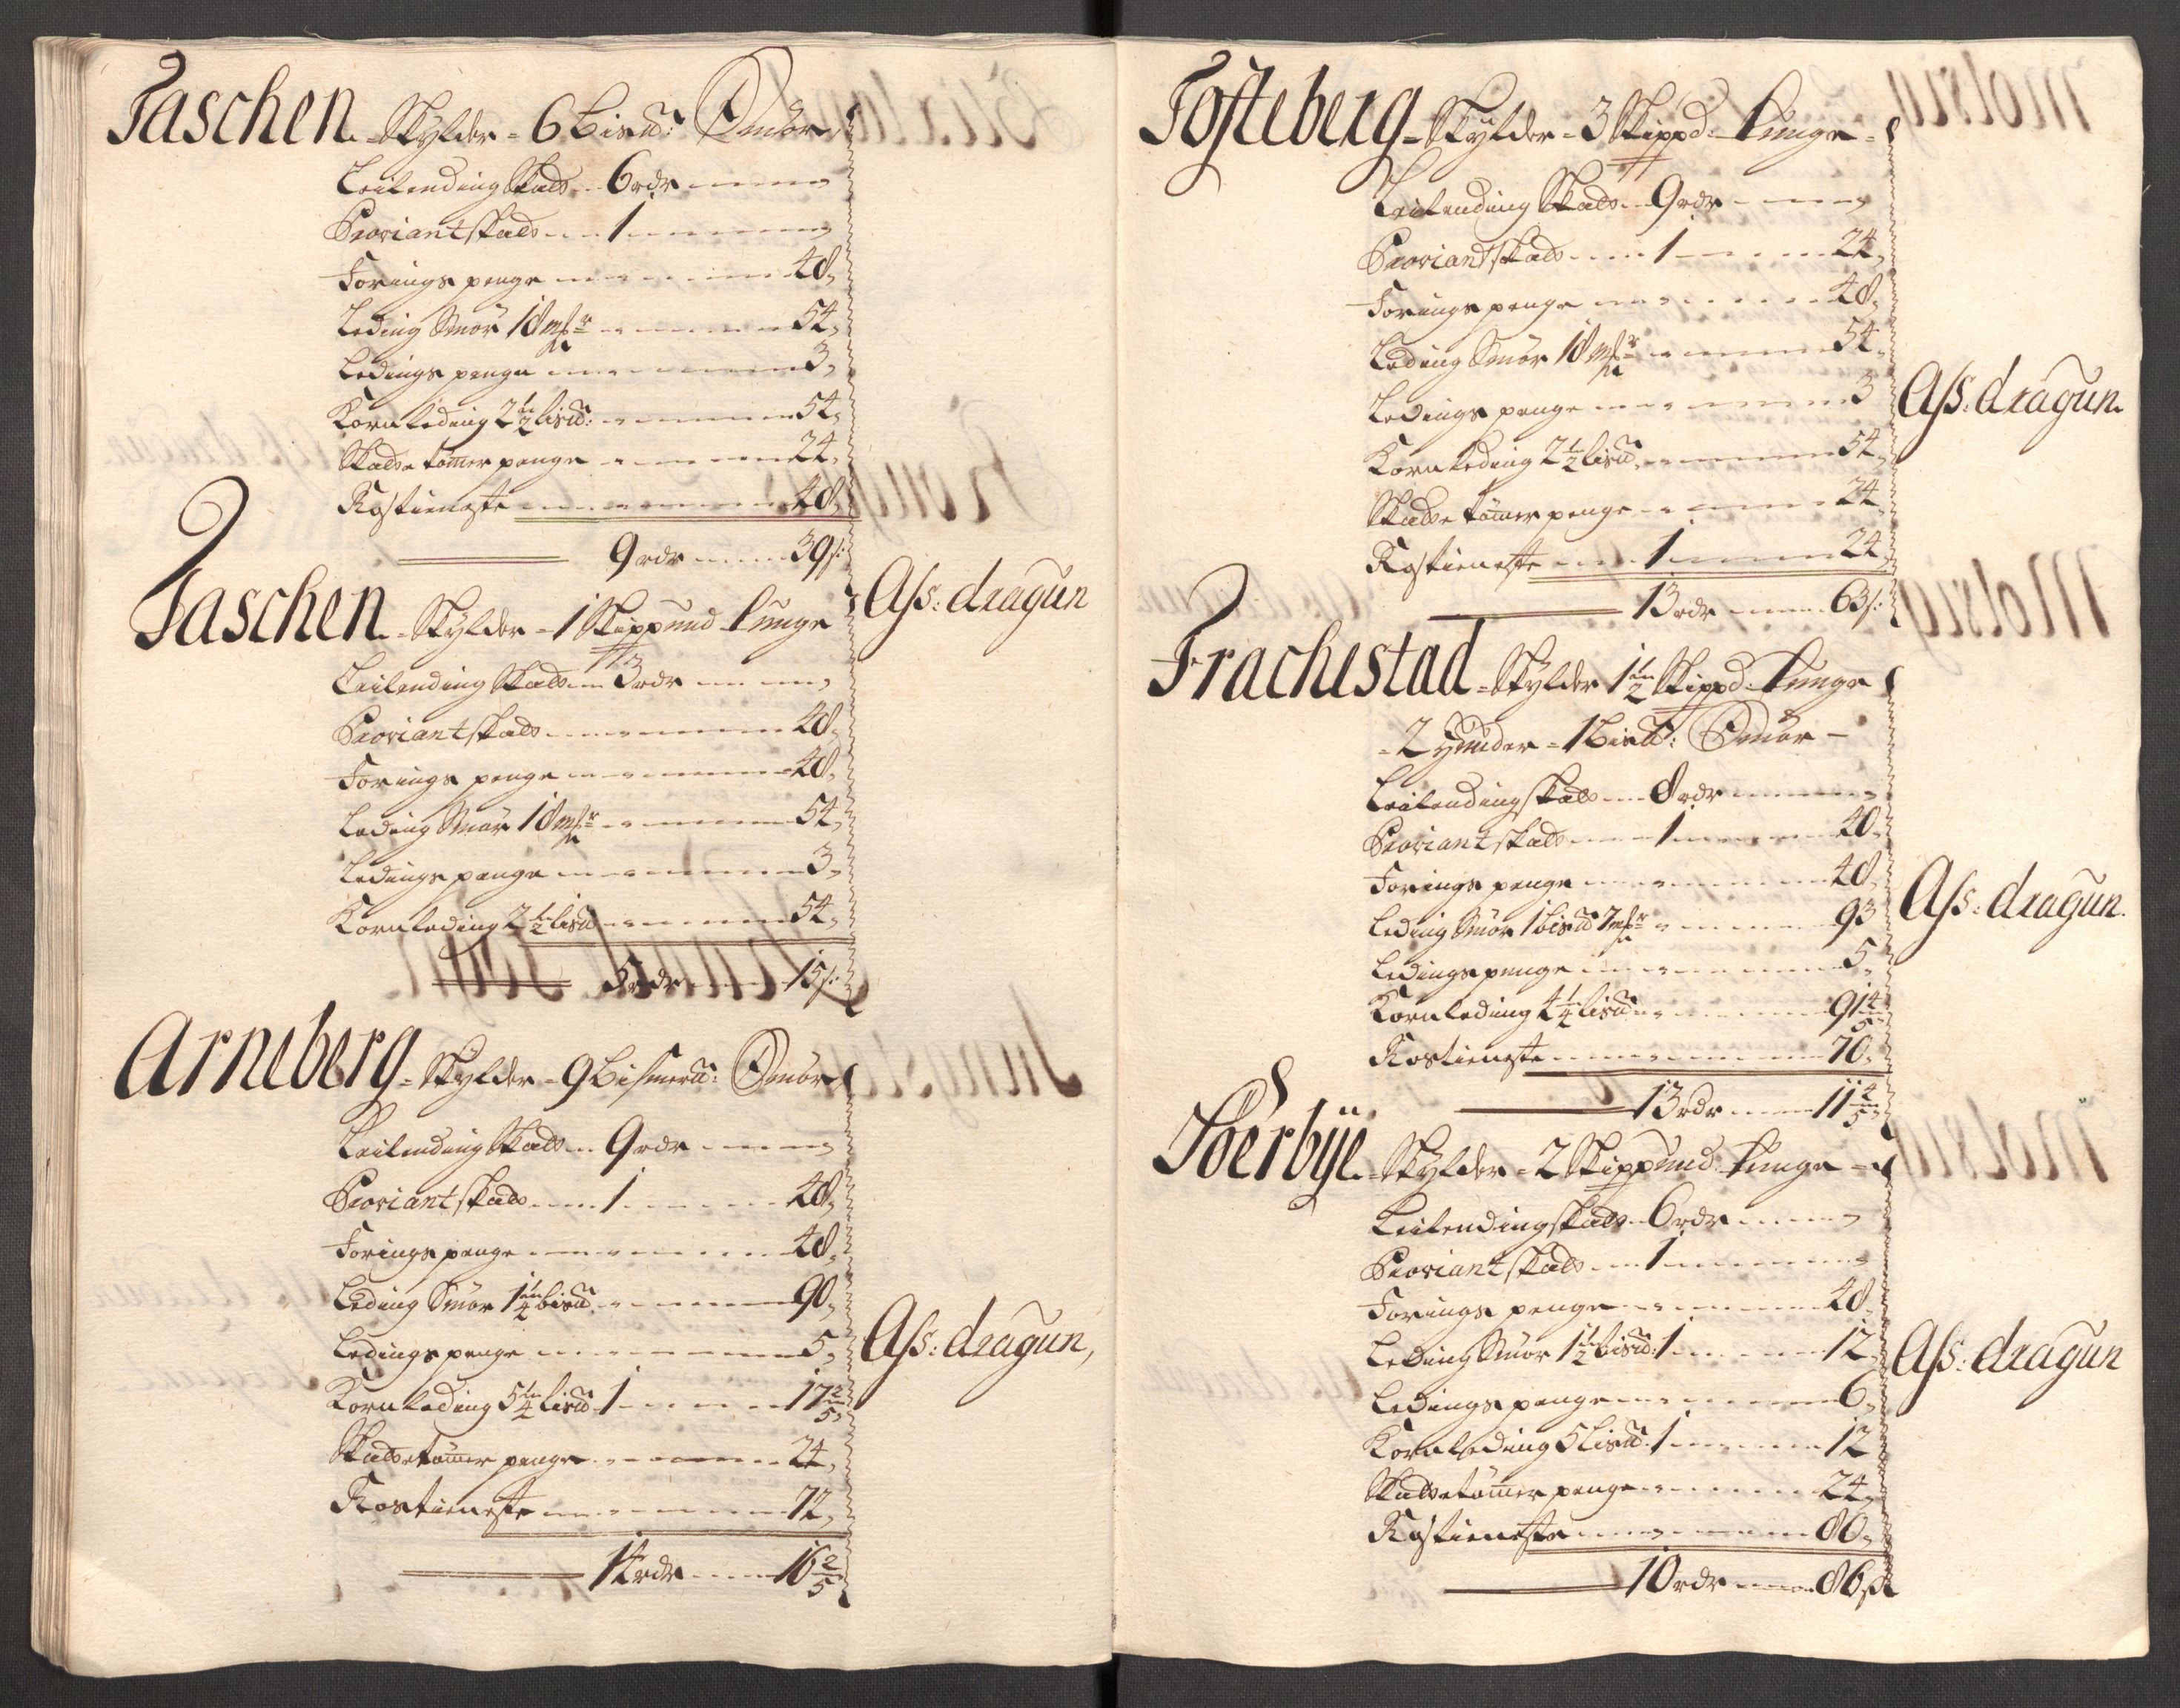 Taschen - Skylder - 6 Bis℔: Smör
Leilending Skatt - 6 rdr
Proviantskatt - 1
Forings penge - 48
Leding Smör 18 mkr - 54
Ledings penge - 3
Kornleding 2 1/2 lis℔: - 54
Skatte tømer penge - 24
Rostieneste - 48
9 rdr - 39 s:
Taschen - Skylder - 1 Skippund tunge
Leilending Skatt - 3 rdr
Proviantskatt - 48
Forings penge - 48
Leding Smör 18 mkr - 54
Ledings penge - 3
Kornleding 2 1/2 lis℔ - 54
5 rdr - 15 s:
Ass: dragun
Arneberg - Skylder - 9 Bismer℔: Smör
Leilending Skatt - 9 rdr
Proviantskatt - 1 - 48
Forings penge - 48
Leding Smör 1 1/4 bis℔ - 90
Ledings penge - 5
Kornleding 5 1/4 lis℔ - 1 - 17 2/5
Skatte tømer penge - 24
Rostieneste - 72
14 rdr - 16 2/5
Ass: dragun,
Tosteberg - Skylder - 3 Skippd: tunge
Leilending Skatt - 9 rdr
Proviantskatt - 1 - 24
Forings penge - 48
Leding Smör 18 mkr - 54
Ledings penge - 3
Kornleding 2 1/2 lis℔ - 54
Skatte tømer penge - 24
Rostieneste - 1 - 24
13 rdr - 63 s:
Ass: dragun.
Frachestad - Skylder 1 1/2 Skippd: tunge
- 2 Huuder - 1 Bis℔: Smör -
Leilendingskatt - 8 rdr
Proviantskatt - 1 - 40
Forings penge - 48
Leding Smör 1 bis℔ 7 mkr - 93
Ledings penge - 5
Kornleding 4 1/4 lis℔ - 91 4/5
Rostieneste - 70
13 rdr - 11 4/5
Ass: dragun.
Sberbÿe - Skylder - 2 Skippund tunge
Leilendingskatt - 6 rdr
Proviantskatt - 1
Forings penge - 48
Leding Smör 1 1/2 bis℔: 1 - 12
Ledings penge - 6
Kornleding 5 lis℔: 1 - 12
Skatte tømer penge - 24
Rostieneste - 80
10 rdr - 86 s
Ass: dragun